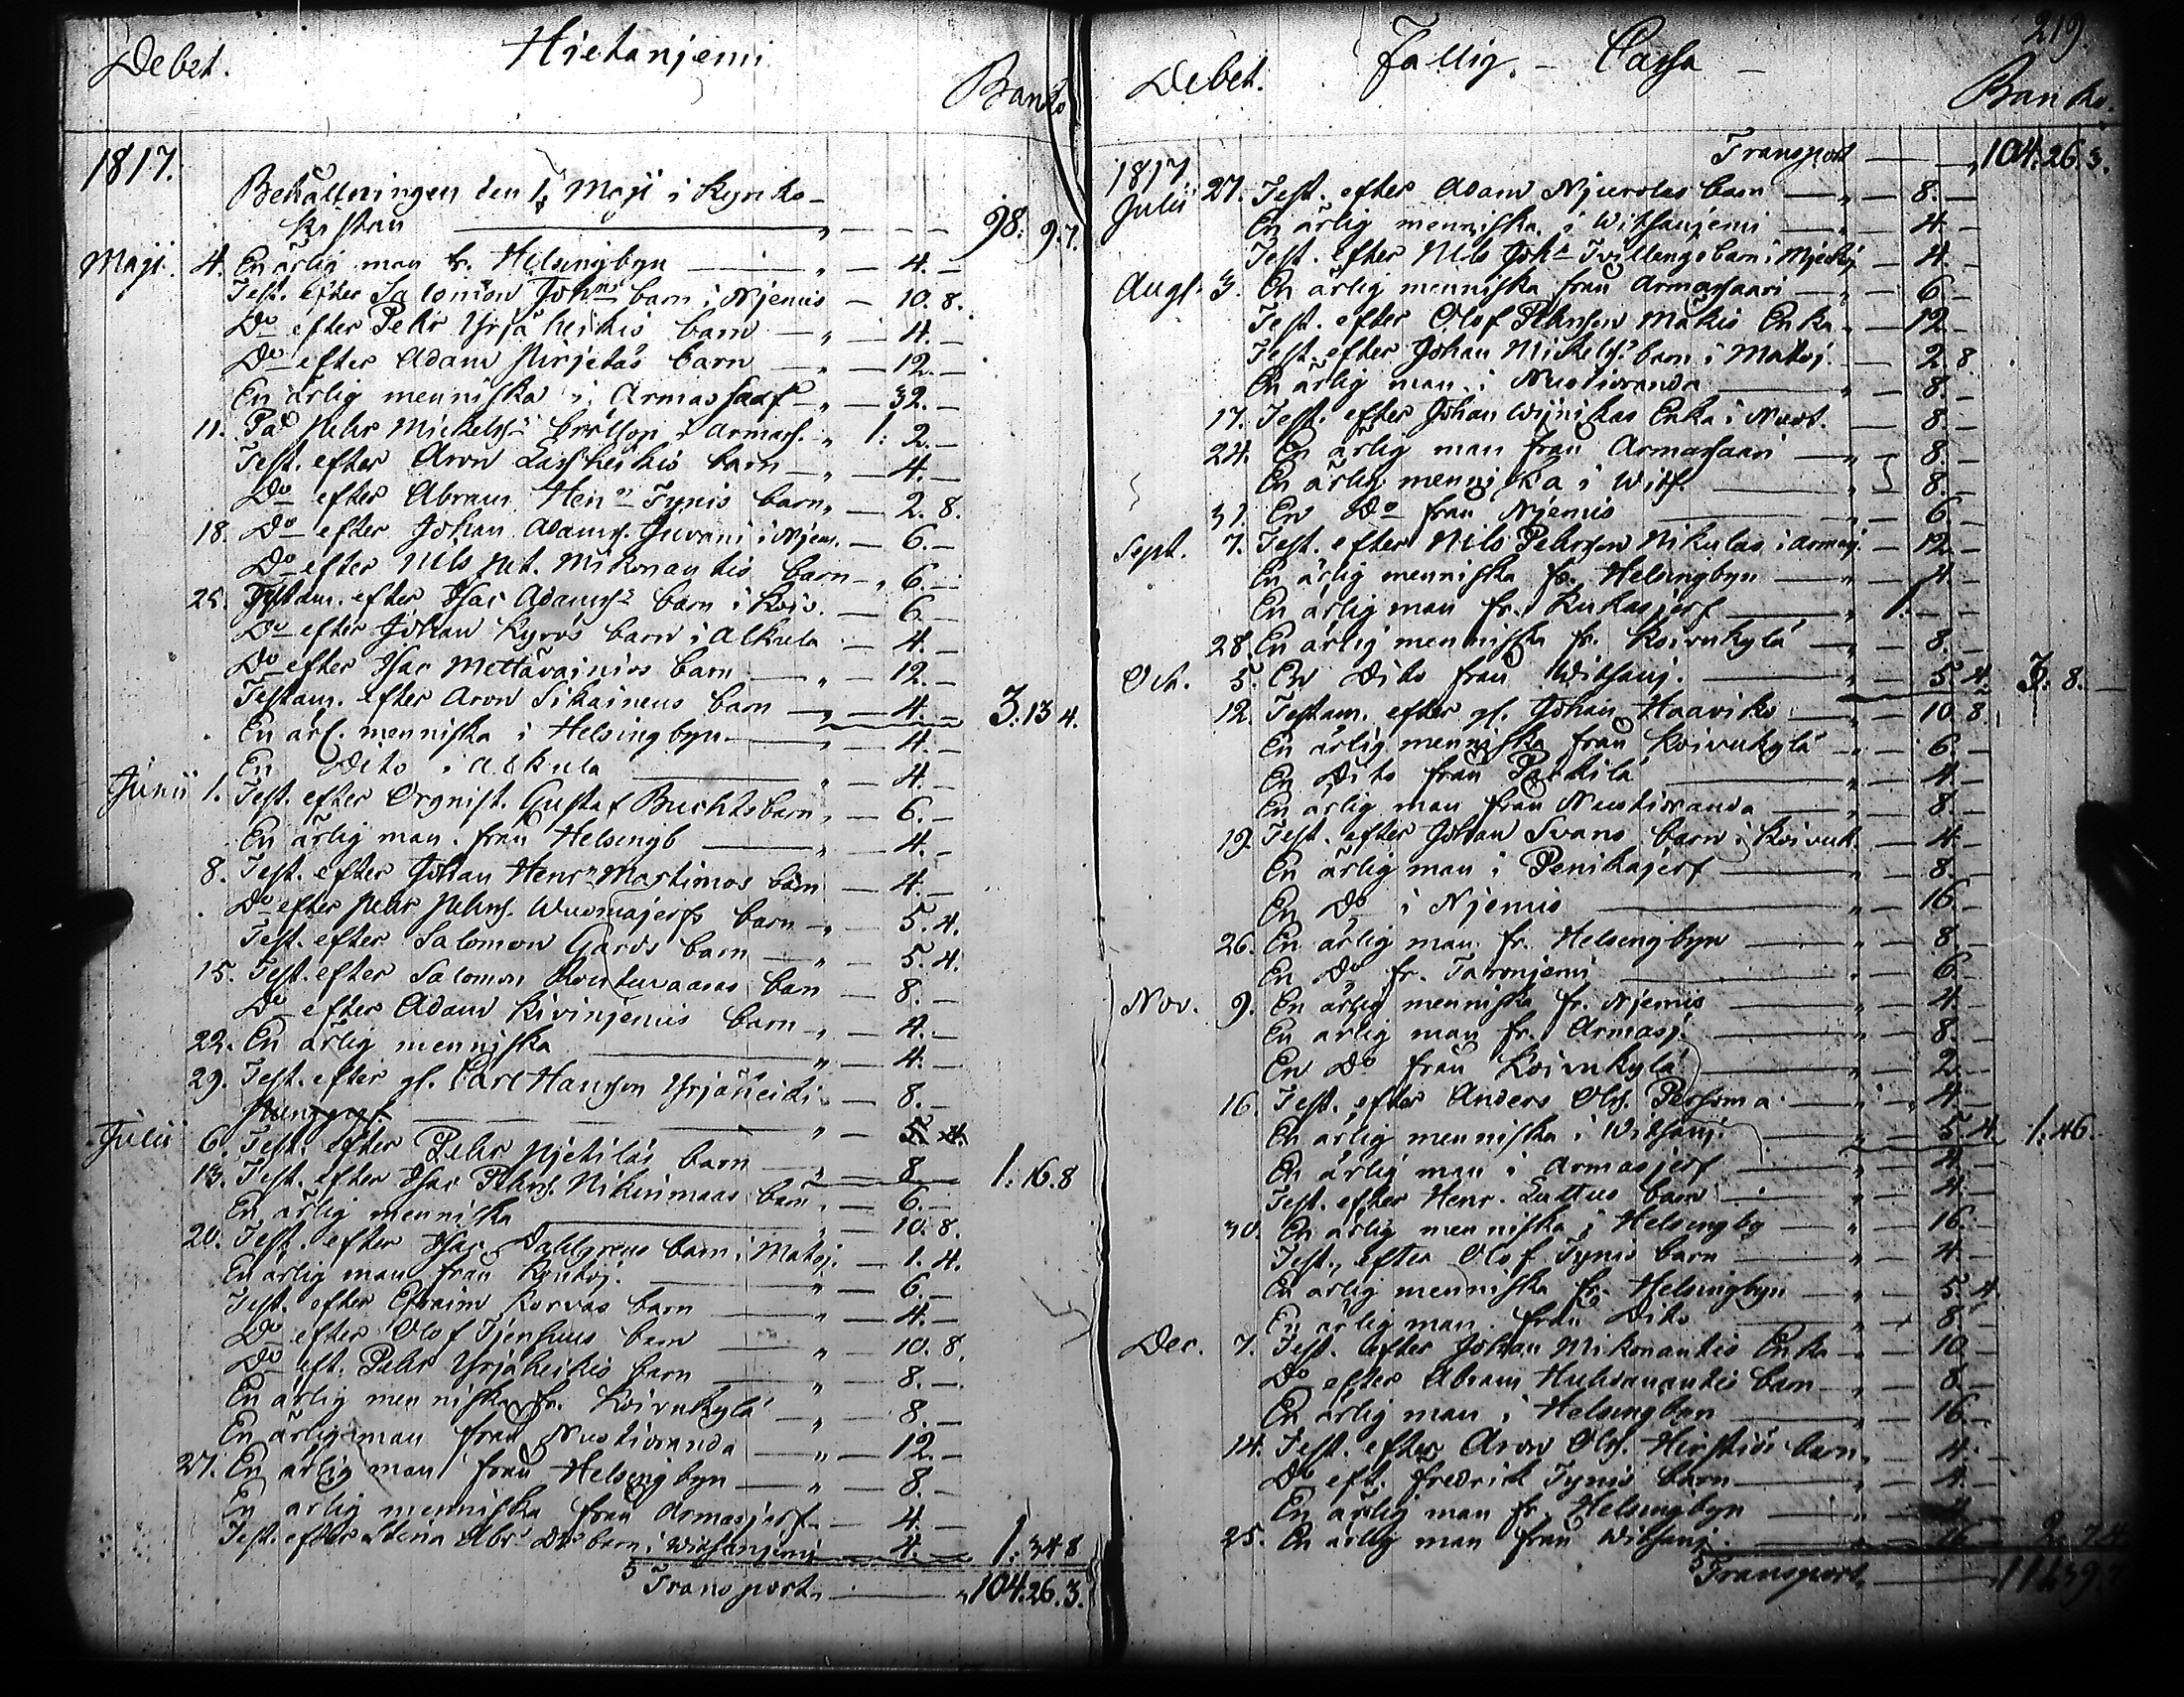 Debet. Hietanjemi Banko
1817.
Behållningen den 1. Maji i Kyrko-
kistan — 98: 9. 7.
Maji. 4. En ärlig man fr. Helsingbyn — 4. —
Test. efter Salomon Joh:ns barn i Njemis — 10. 8.
Do efter Pehr Yrjäheikis barn — 4. —
Do efter Adam Pirjetäs barn — 12. —
En ärlig menniska i Armassaari — 32. —
11. På Pehr Mickelss:s bröllop i Armass. 1: 2. —
Test. efter Aron Lassheikis barn — 4. —
Do efter Abram Hen:n Tynis barn — 2. 8.
18. Do efter Johan Adamss. Juvani i Njem. — 6. —
Do efter Nils Pet. Mikonantis barn — 6. —
25. Testam. efter Isac Adamss:s barn i Koiv. — 6. —
Do efter Johan Kyrös barn i Alkula — 4. —
Do efter Isac Mettävainios barn — 12. —
Testam. efter Aron Sikainens barn — 4. — 3: 13 4.
En ärl. menniska i Helsingbyn — 4. —
En Dito i Alkula — 4. —
Junii 1. Test. efter Orgnist. Gustaf Buchts barn — 6. —
En ärlig man från Helsingb — 4. —
8. Test. efter Johan Henr:n Martimos barn — 4. —
Do efter Pehr Pehrs. Wuomajerfs barn — 5. 4.
Test. efter Salomon Gärds barn — 5. 4.
15. Test. efter Salomon Rouluvaaras barn — 8. —
Do efter Adam Kivinjemis barn — 4. —
22. En ärlig menniska — 4. —
29. Test. efter gl. Carl Hansson Yrjäheiki — 8. —
— 5. 4.
Julii 6. Test. efter Pehr Njetiläs barn — 8 — 1: 16. 8
13. Test. efter Isac Pehrs. Nikinmaas barn — 6. —
En ärlig menniska — 10. 8.
20. Test. efter Isac Dahlgrens barn i Matoj. — 1. 4.
En ärlig man från Kouloj. — 6. —
Test. efter Efraim Korvas barn — 4. —
Do efter Olof Tjenhuus barn — 10. 8.
Do eft. Pehr Yrjäheikis barn — 8. —
En ärlig menniska fr. Koivukylä — 8. —
En ärlig man från Nuotioranda — 12. —
27. En ärlig man från Helsingbyn — 8. —
En ärlig menniska från Armasjerf — 4. —
Test. efter Stina Abr. Drs barn i Witsanjemi — 4. — 1: 34 8
Transport — 104. 26. 3.
219
Debet. Fattig. — Cassa — Banko.
Transport — 104. 26. 3.
1817
Julii 27. Test. efter Adam Njurolas barn — 8. —
En ärlig menniska i Witsanjemi — 4. —
Test. efter Nils Joh:s Tvillingsbarn i Njeskij — 4. —
Augs. 3. En ärlig menniska från Armassaari — 6 —
Test. efter Olof Pehrsson Mäkis Enka — 12 —
Test. efter Johan Mickelss:s barn i Matoj. — 2. 8.
En ärlig man i Nuotioranda — 8. —
17. Test. efter Johan Wijnikas Enka i Nuot. — 8. —
24. En ärlig man från Armassaari — 8. —
En ärlig menniska i Wits. — 8. —
31. En Do från Njemis — 6. —
Sept. 7. Test. efter Nils Pehrsson Nikulas i Armasj. — 12. —
En ärlig menniska fr. Helsingbyn — 4. —
En ärlig man fr. Kukasjerf — 1: — —
28. En ärlig menniska fr. Koivukylä — 8. —
Oct. 5. En Dito från Witsanj. — 5. 4. 3: 8. —
12. Testam. efter gl. Johan Haaviko — 10 8.
En ärlig menniska från Koivukylä — 6. —
En Dito från Päckilä — 4 —
En ärlig man från Nuotioranda — 8. —
19. Test. efter Johan Svans barn i Koivuk. — 4 —
En ärlig man i Penikajerf — 8. —
En Do i Njemis — 16. —
26. En ärlig man fr. Helsingbyn — 8. —
En Do fr. Taronjemi — 6. —
Nov. 9. En ärlig menniska fr. Njemis — 4. —
En ärlig man fr. Armasj. — 8. —
En Do från Koivukylä — 2. —
16. Test. efter Anders Ols. Perssma — 4. —
En ärlig menniska i Witsanj. — 5. 4. 1: 46. —
En ärlig man i Armasjerf — 4. —
Test. efter Henr. Luttus barn — 4. —
30. En ärlig menniska i Helsingby — 16. —
Test. efter Olof Tynis barn — 4. —
En ärlig menniska fr. Helsingbyn — 5. 4.
En ärlig man från Dito — 8. —
Dec. 7. Test. efter Johan Mikonantis Enka — 10 —
Do efter Abram Huhdanantis barn — 8. —
En ärlig man i Helsingbyn — 16. —
14. Test. efter Aron Ols. Hirstiös barn — 4. —
Do eft. Fredrick Tynis barn — 4. —
En ärlig man fr. Helsingbyn —
25. En ärlig man från Witsanj. — 16 — 2. 7 4
Transport —